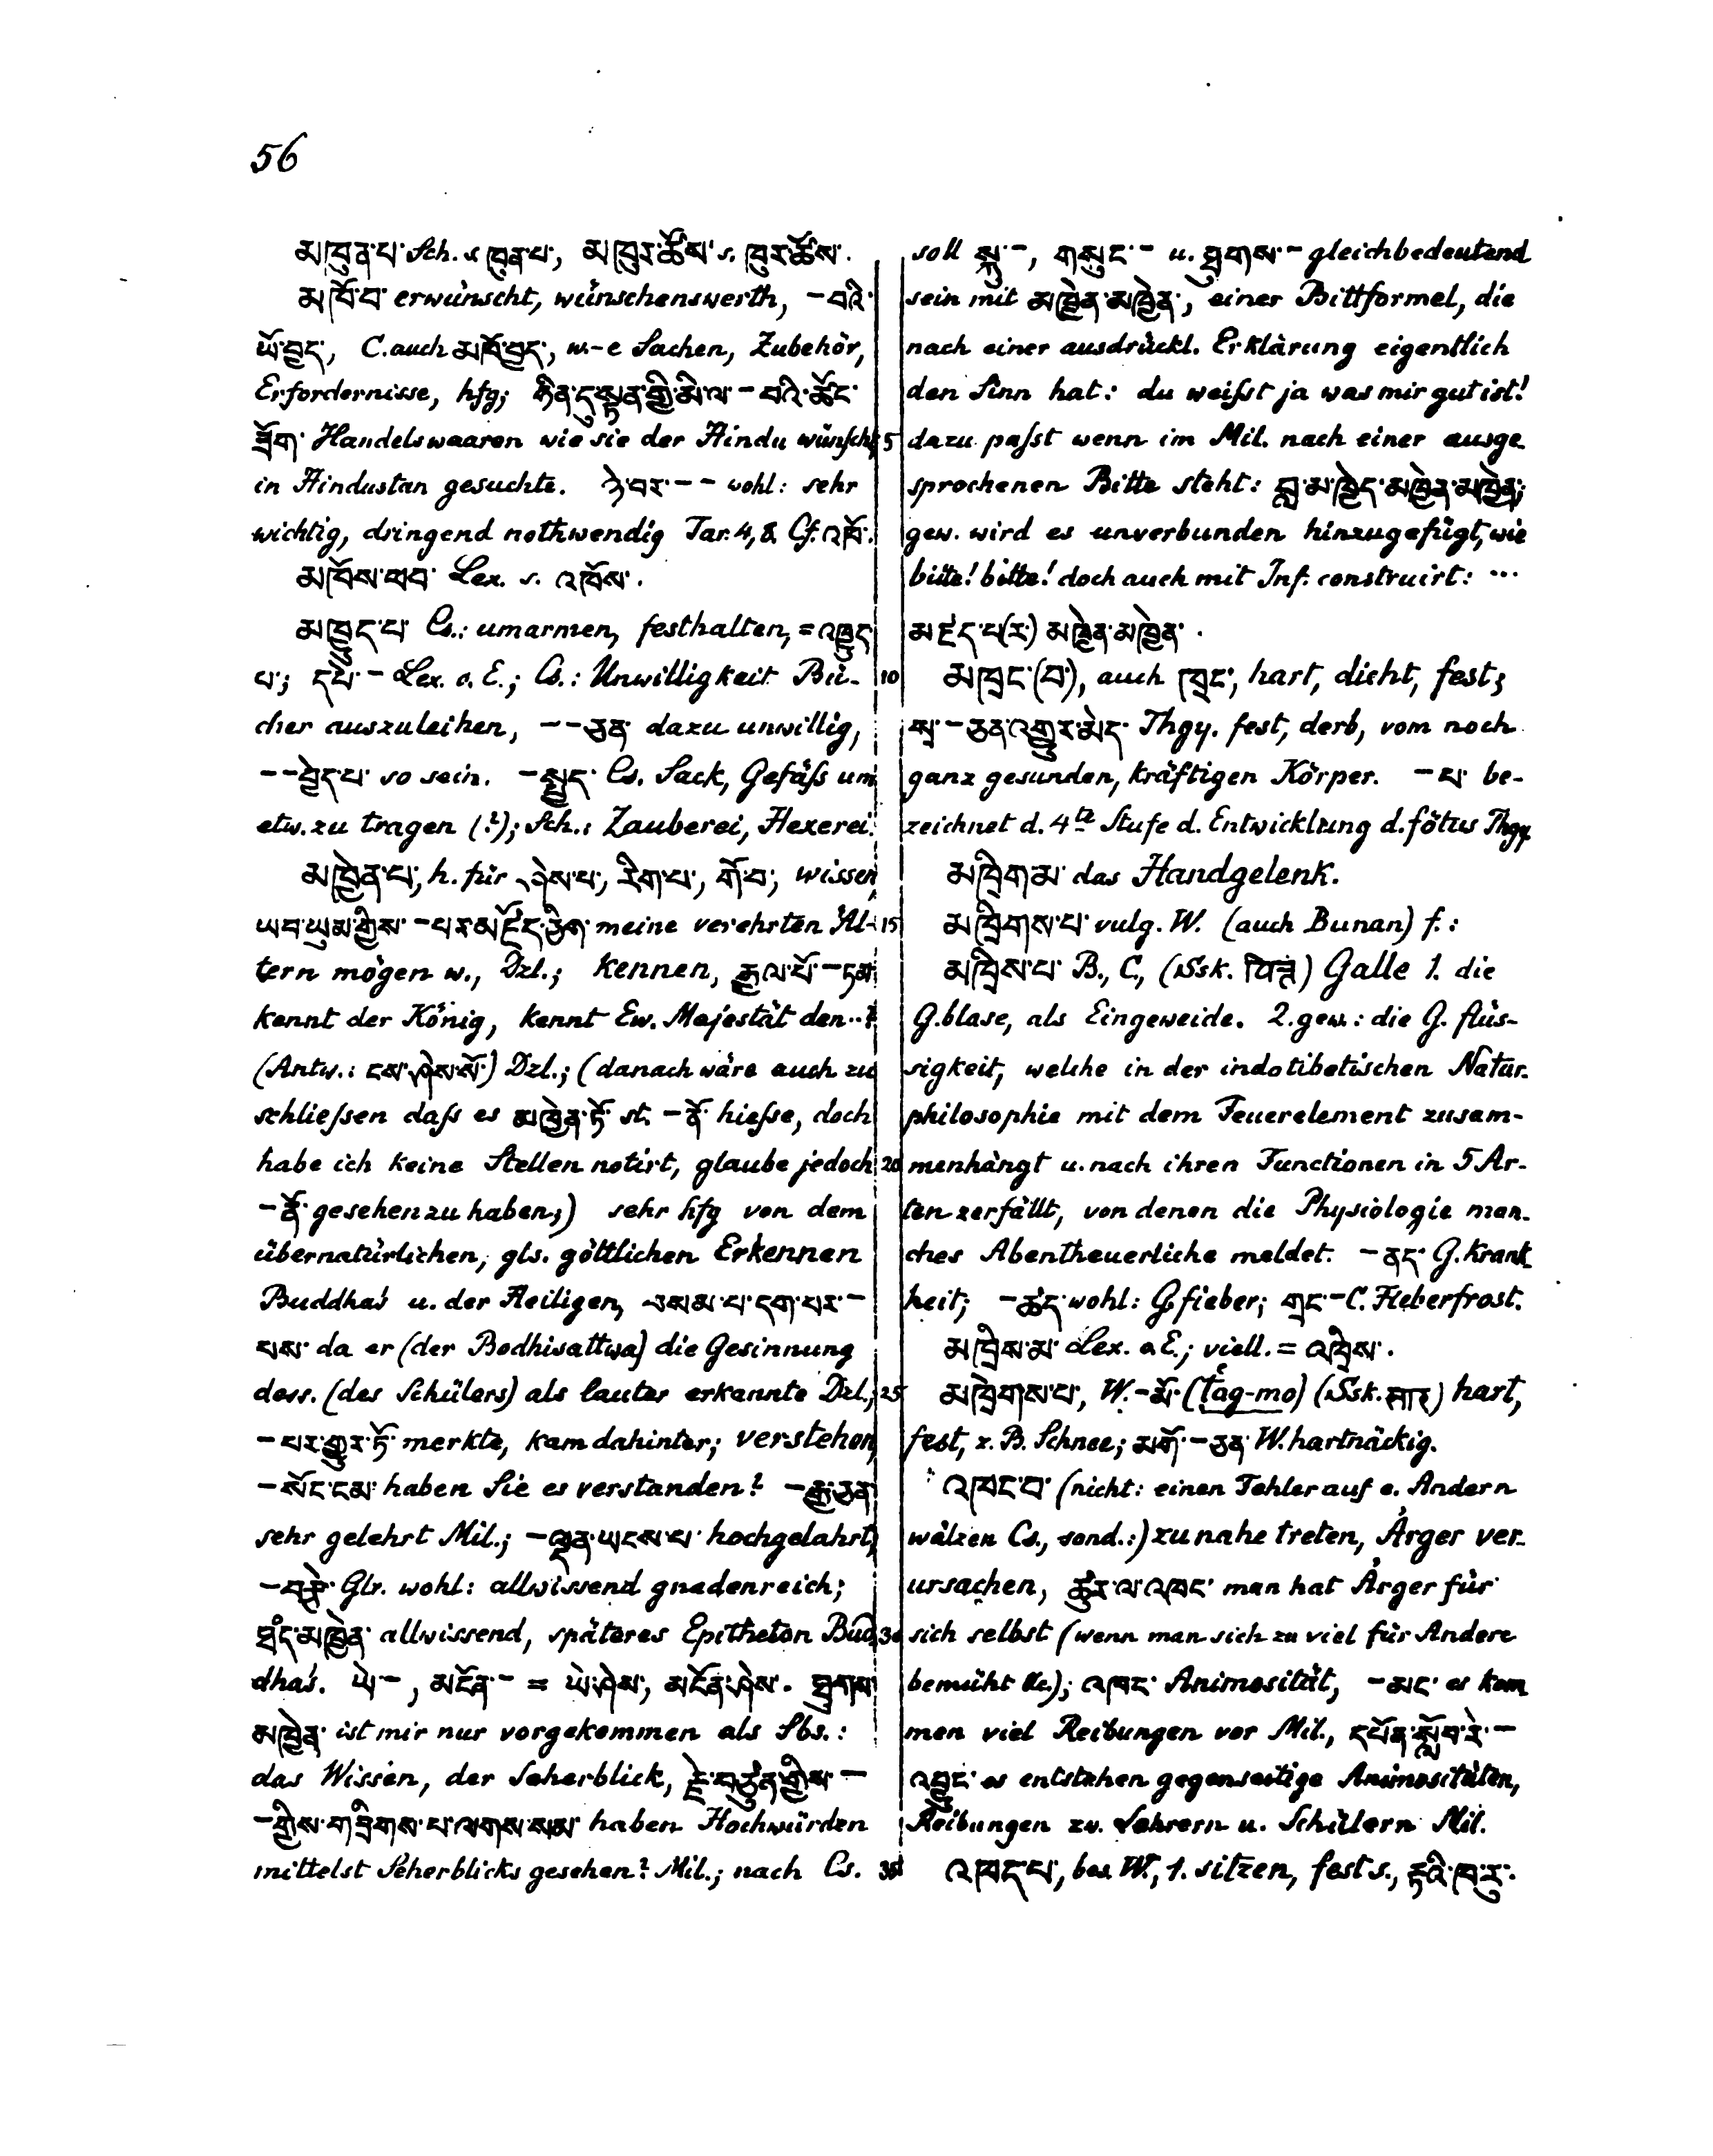 56
མཁུན་པ་ Sch. s. ཁུན་པ་, མཁུར་ཚོས་ s. ཁུར་ཚོས་.
མཁོ་བ་ erwünscht, wünschenswerth, –བའི་
ཡོ་བྱད་, C. auch མཁོ་བྱད་, w.-e Sachen, Zubehör,
Erfordernisse, hfg; ཧིན་དུ་སྟན་གྱི་མི་ལ་ – བའི་ཚོང་
ཟོག་ Handelswaaren wie sie der Hindu wünscht,
in Hindustan gesuchte. ཉེ་བར་ – – wohl: sehr
wichtig, dringend nothwendig Tar. 4, 8. Cf. འཁོ་.
མཁོས་ཕབ་ Lex. s. འཁོས་.
མཁྱུད་པ་ Cs.: umarmen, festhalten, = འཁྱུད་
པ་; དཔེ་ – Lex. o. E.; Cs.: Unwilligkeit Bü-
cher auszuleihen, – – ཅན་ dazu unwillig,
– – བྱེད་པ་ so sein. – སྤྱད་ Cs. Sack, Gefäß um
etw. zu tragen (?); Sch.: Zauberei, Hexerei.
མཁྱེན་པ་, h. für ཤེས་པ་, རིག་པ་, གོ་བ་, wissen,
ཡབ་ཡུམ་གྱིས་ – པར་མཛོད་ཅིག་ meine verehrten Äl-
tern mögen w., Dzl.; kennen, རྒྱལ་པོ་ – ཏམ་
kennt der König, kennt Ew. Majestät den ..?
(Antw.: ངས་ཤེས་སོ་) Dzl.; (danach wäre auch zu
schließen daß es མཁྱེན་ཏོ་ st. – ནོ་ hieße, doch
habe ich keine Stellen notirt, glaube jedoch
– ནོ་ gesehen zu haben;) sehr hfg von dem
übernatürlichen, gls. göttlichen Erkennen
Buddha's u. der Heiligen, བསམ་པ་དག་པར་ –
པས་ da er (der Bodhisattwa) die Gesinnung
dess. (des Schülers) als lauter erkannte Dzl.;
– པར་གྱུར་ཏོ་ merkte, kam dahinter; verstehen,
– སོང་ངམ་ haben Sie es verstanden? – རྒྱ་ཅན་
sehr gelehrt Mil.; – ལྡན་ཡངས་པ་ hochgelahrt,
– བརྩེ་ Glr. wohl: allwissend gnadenreich;
ཀུན་མཁྱེན་ allwissend, späteres Epitheton Bud-
dha's. ཡེ་ –, མངོན་ – = ཡེ་ཤེས་, མངོན་ཤེས་. ཐུགས་
མཁྱེན་ ist mir nur vorgekommen als Sbs.:
das Wissen, der Seherblick, རྗེ་བཙུན་གྱིས་ –
– གྱིས་གཟིགས་པ་ལགས་སམ་ haben Hochwürden
mittelst Seherblicks gesehen? Mil.; nach Cs.
soll སྐུ་ –, གསུང་ – u. ཐུགས་ – gleichbedeutend
sein mit མཁྱེན་མཁྱེན་, einer Bittformel, die
nach einer ausdrückl. Erklärung eigentlich
den Sinn hat: du weißt ja was mir gut ist!
5 dazu paßt wenn im Mil. nach einer ausge-
sprochenen Bitte steht: བླ་མ་ཁྱེད་མཁྱེན་མཁྱེན་;
gew. wird es unverbunden hinzugefügt, wie
bitte! bitte! doch auch mit Inf. construirt: ...
མཛད་པ(ར་) མཁྱེན་མཁྱེན་.
10 མཁྲང་(བ་), auch ཁྲང་, hart, dicht, fest;
ས་ – ཅན་འགྱུར་མེད་ Thgy. fest, derb, vom noch
ganz gesunden, kräftigen Körper. – པ་ be-
zeichnet d. 4te Stufe d. Entwicklung d. fötus Thgy.
མཁྲིག་མ་ das Handgelenk.
15 མཁྲིགས་པ་ vulg. W. (auch Bunan) f.:
མཁྲིས་པ་ B., C, (Ssk. पित्त) Galle 1. die
G.blase, als Eingeweide. 2. gew.: die G. flüs-
sigkeit, welche in der indotibetischen Natur-
philosophie mit dem Feuerelement zusam-
20 menhängt u. nach ihren Functionen in 5 Ar-
ten zerfällt, von denen die Physiologie man-
ches Abentheuerliche meldet. – ནད་ G. Krank-
heit; – ཚད་ wohl: G. fieber; གྲང་ – C. Fieberfrost.
མཁྲིས་མ་ Lex. o. E.; viell. = འཁྲིས་.
25 མཁྲེགས་པ་, W. – མོ་ (ṭág-mo) (Ssk. सार) hart,
fest, z. B. Schnee; མགོ་ – ཅན་ W. hartnäckig.
འཁང་བ་ (nicht: einen Fehler auf e. Andern
wälzen Cs., sond.:) zu nahe treten, Ärger ver-
ursachen, ཚུར་ལ་འཁང་ man hat Ärger für
30 sich selbst (wenn man sich zu viel für Andere
bemüht &c.); འཁང་ Animosität, – མང་ es kom
men viel Reibungen vor Mil., དཔོན་སློབ་རེ་ –
འབྱུང་ es entstehen gegenseitige Animositäten,
Reibungen zw. Lehrern u. Schülern Mil.
35 འཁད་པ་, bes W., 1. sitzen, fest s., རྟའི་ཁ་རུ་.